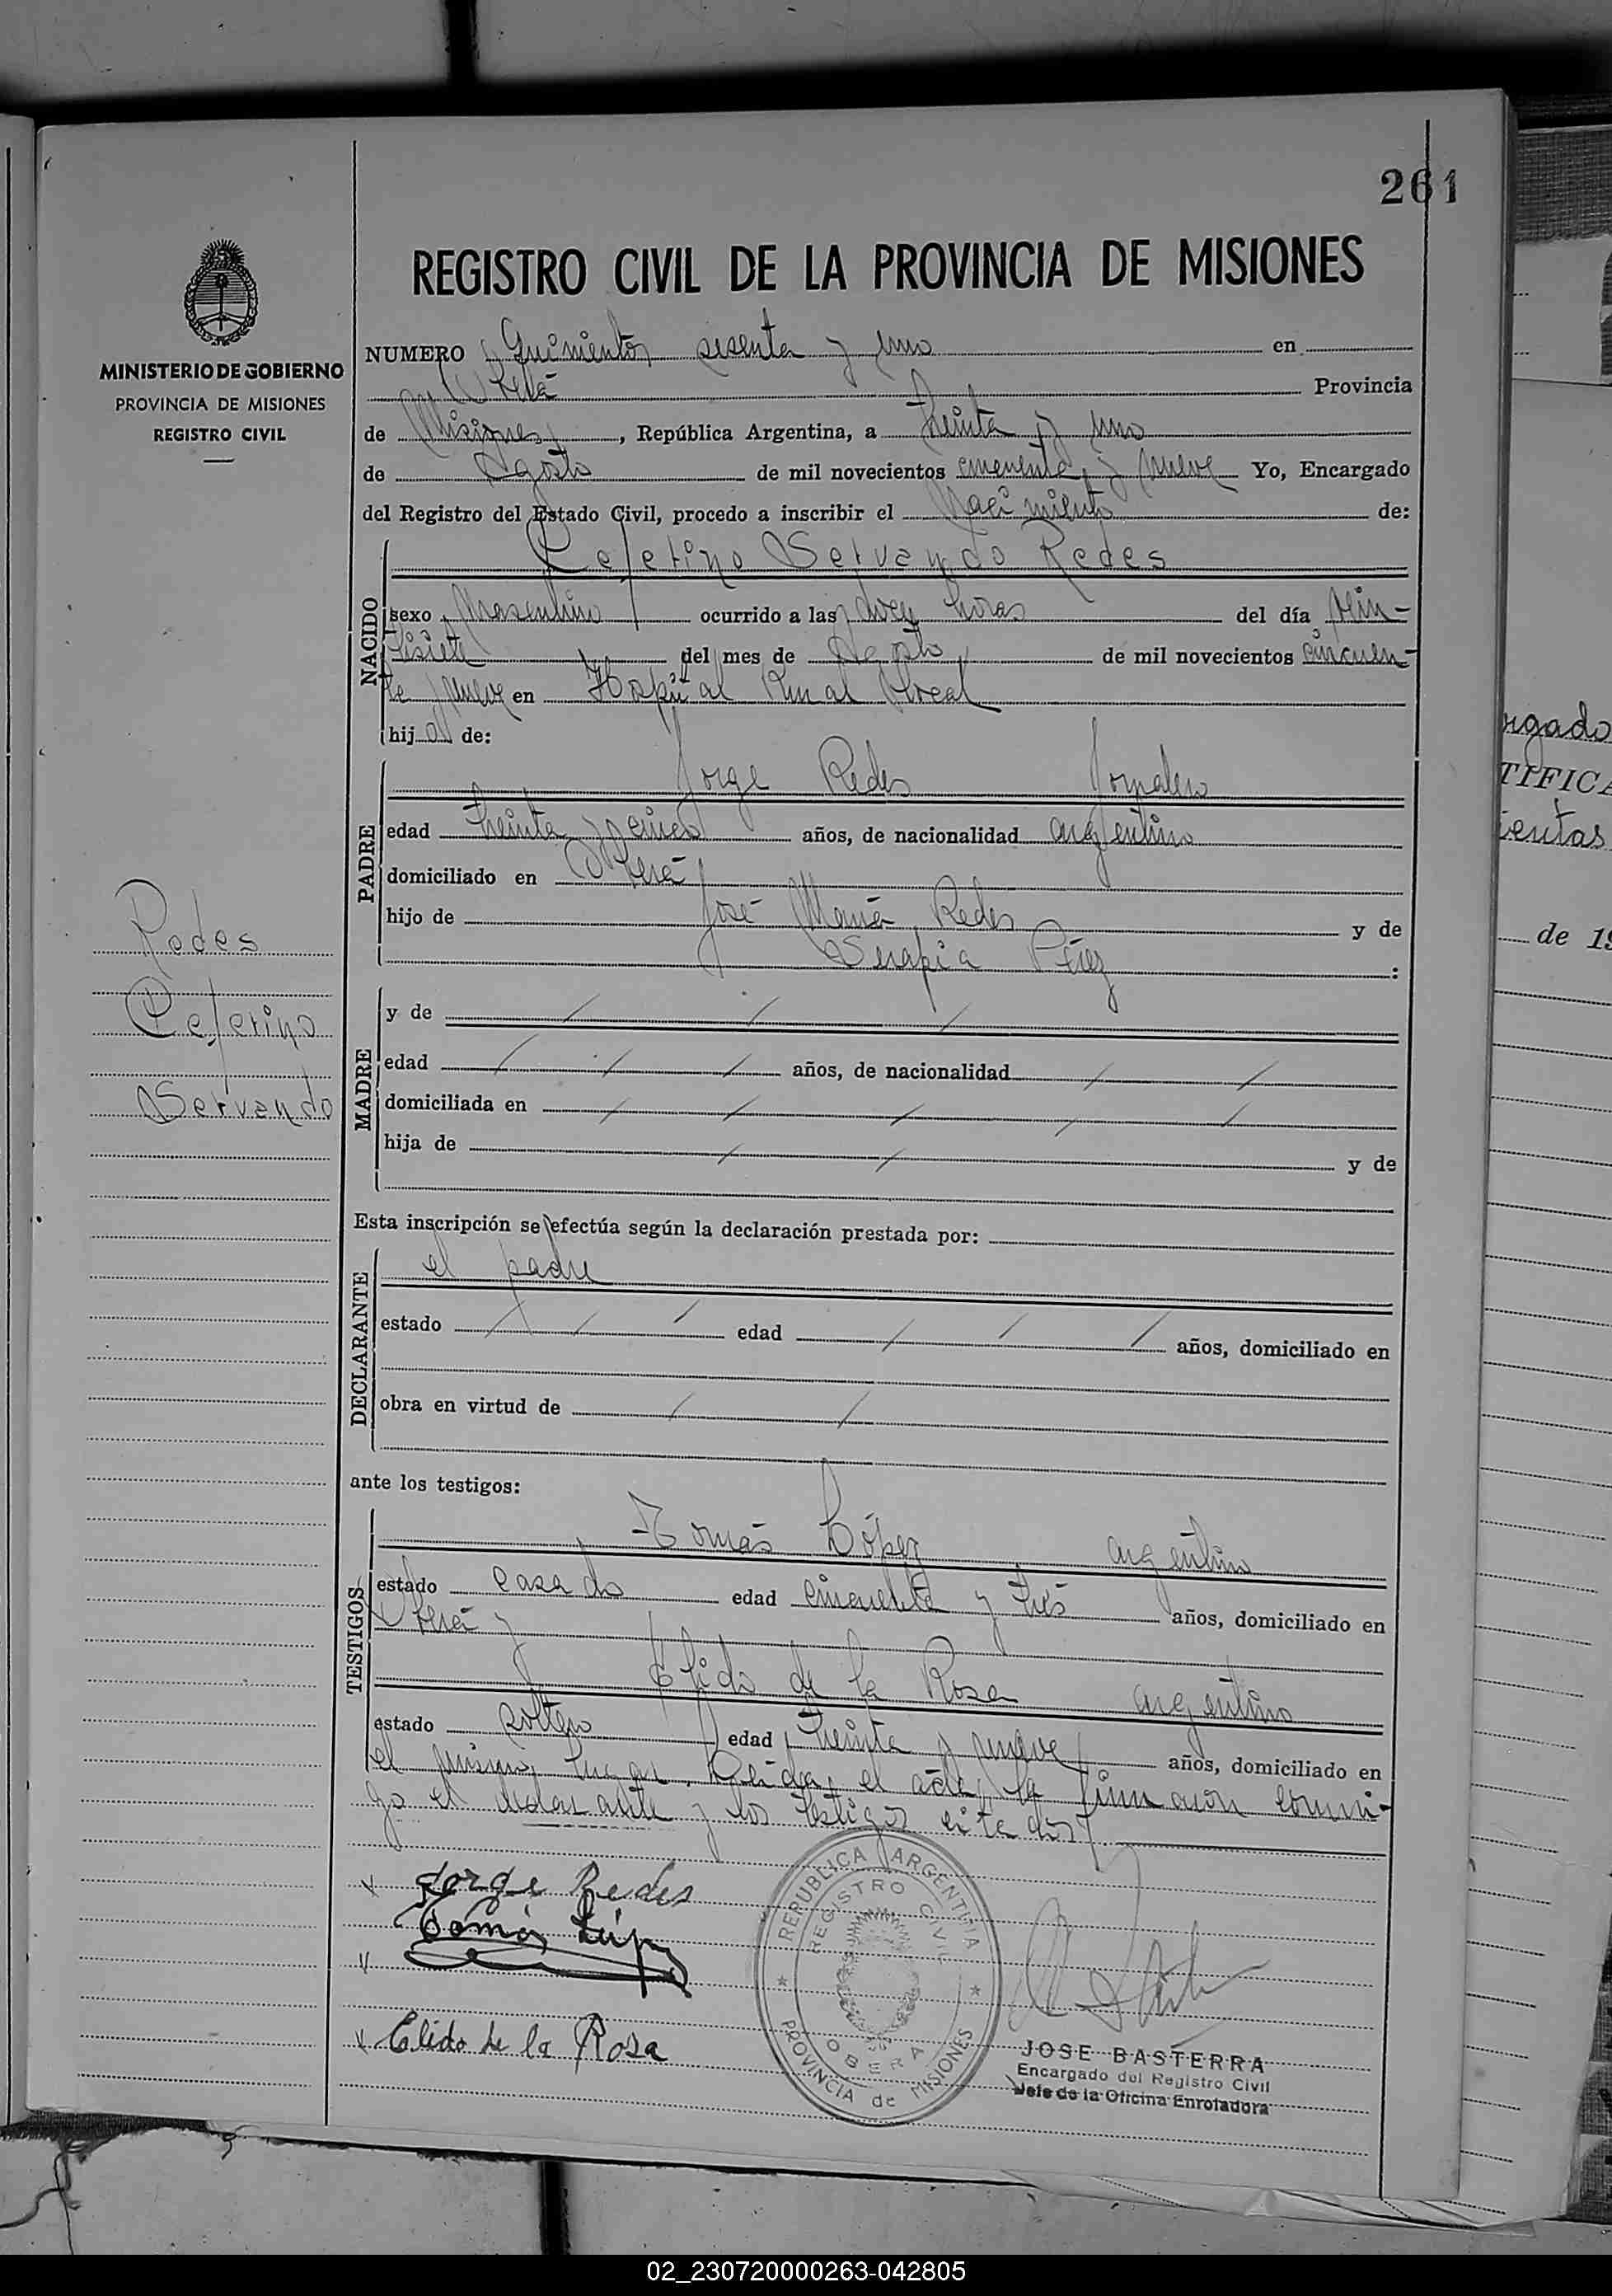 261
REGISTRO CIVIL DE LA PROVINCIA DE MISIONES
MINISTERIO DE GOBIERNO
PROVINCIA DE MISIONES
REGISTRO CIVIL
NUMERO Quinientos sesenta y uno en
Oberá Provincia
de Misiones, República Argentina, a treinta y uno
de Agosto de mil novecientos cincuenta y nueve Yo, Encargado
del Registro del Estado Civil, procedo a inscribir el Nacimiento de:
NACIDO
Ceferino Servando Redes
sexo Masculino ocurrido a las doce horas del día Vein-
tisiete del mes de Agosto de mil novecientos cincuen-
ta y nueve en Hospital Rural local
hijo de:
PADRE
Jorge Redes Jornalero
edad treinta y cinco años, de nacionalidad argentino
domiciliado en Oberá
hijo de José María Redes y de
Serapia :
Redes
Ceferino
Servando
MADRE
y de / / /
edad / / / años, de nacionalidad / /
domiciliada en / / / / /
hija de / / y de
Esta inscripción se efectúa según la declaración prestada por:
DECLARANTE
el padre
estado / / / edad / / / años, domiciliado en
obra en virtud de / /
ante los testigos:
TESTIGOS
Tomás López argentino
estado casado edad cincuenta y tres años, domiciliado en
Oberá y
Elido de la Rosa argentino
estado soltero edad treinta y nueve años, domiciliado en
el mismo lugar. Leída el acta, la firmaron conmi-
go el declarante y los testigos citados
x Jorge Redes
Tomás López
x Elido de la Rosa
REPUBLICA ARGENTINA
REGISTRO CIVIL
OBERA
PROVINCIA de MISIONES
JOSE BASTERRA
Encargado del Registro Civil
Jefe de la Oficina Enroladora
rgado
TIFICA
ientas
de 19
02_230720000263-042805